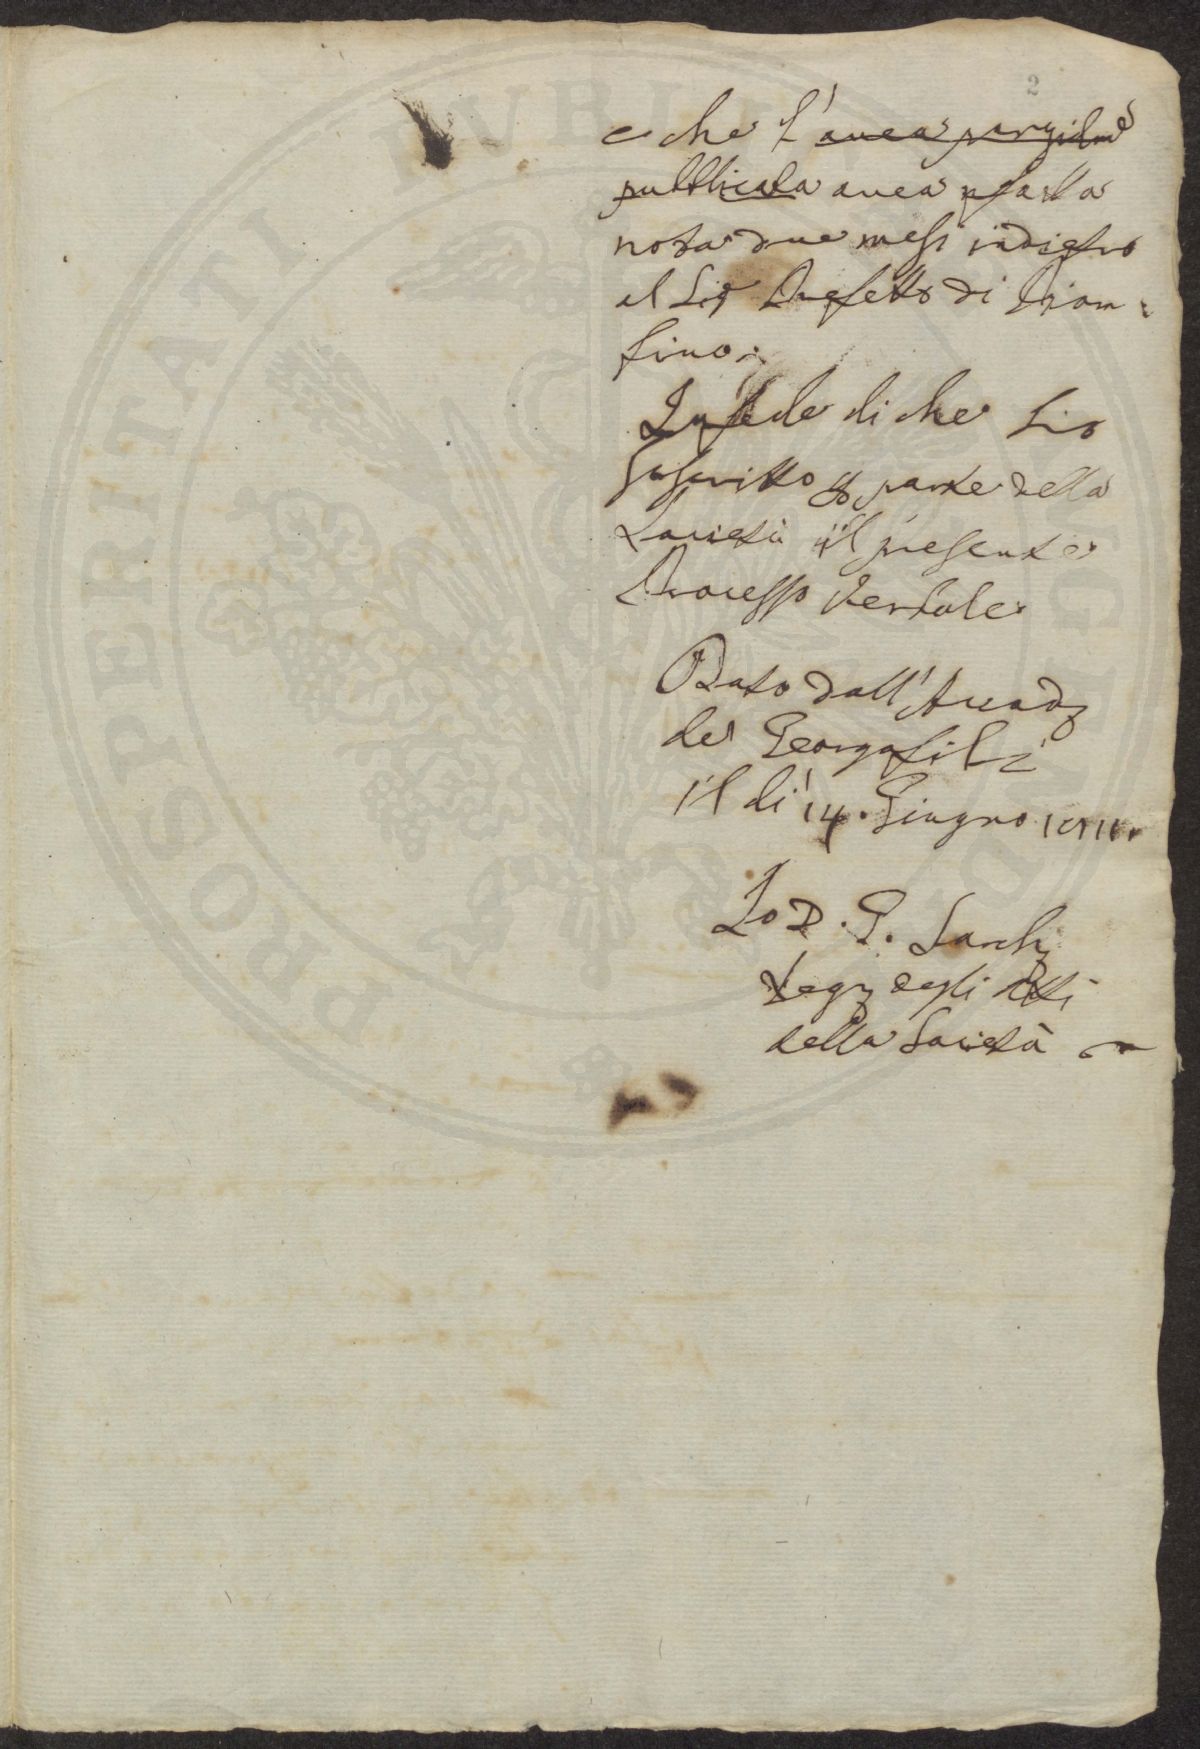 2
e che l'avea parzialm.e
pubblicata avea fatta
nota due mesi indietro
al Sig. Prefetto di Piom=
bino.
In fede di che ho
soscritto p. parte della
Società il presente
Processo Verbale
Dato dall'Accad.
de' Georgofili
il di' 14. Giugno
Io D. G. Sarchi
Seg. degli Atti
della Società
PROSPERITATI PVBLICAE